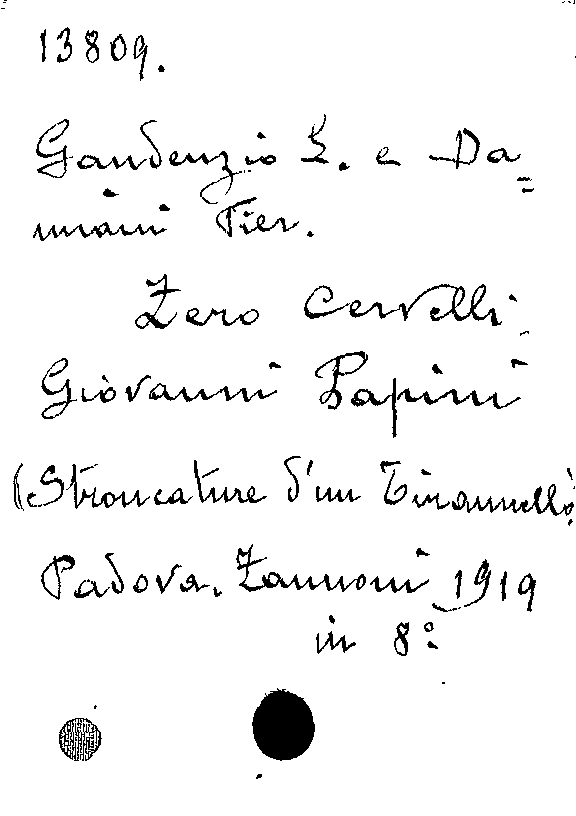 13809.
Gaudenzio L. e Da=
miani Tier.
Zero Cervelli.
Giovanni Papini
(Stroncature d'un Tirannello)
Padova. Zannoni 1919
in 8°.